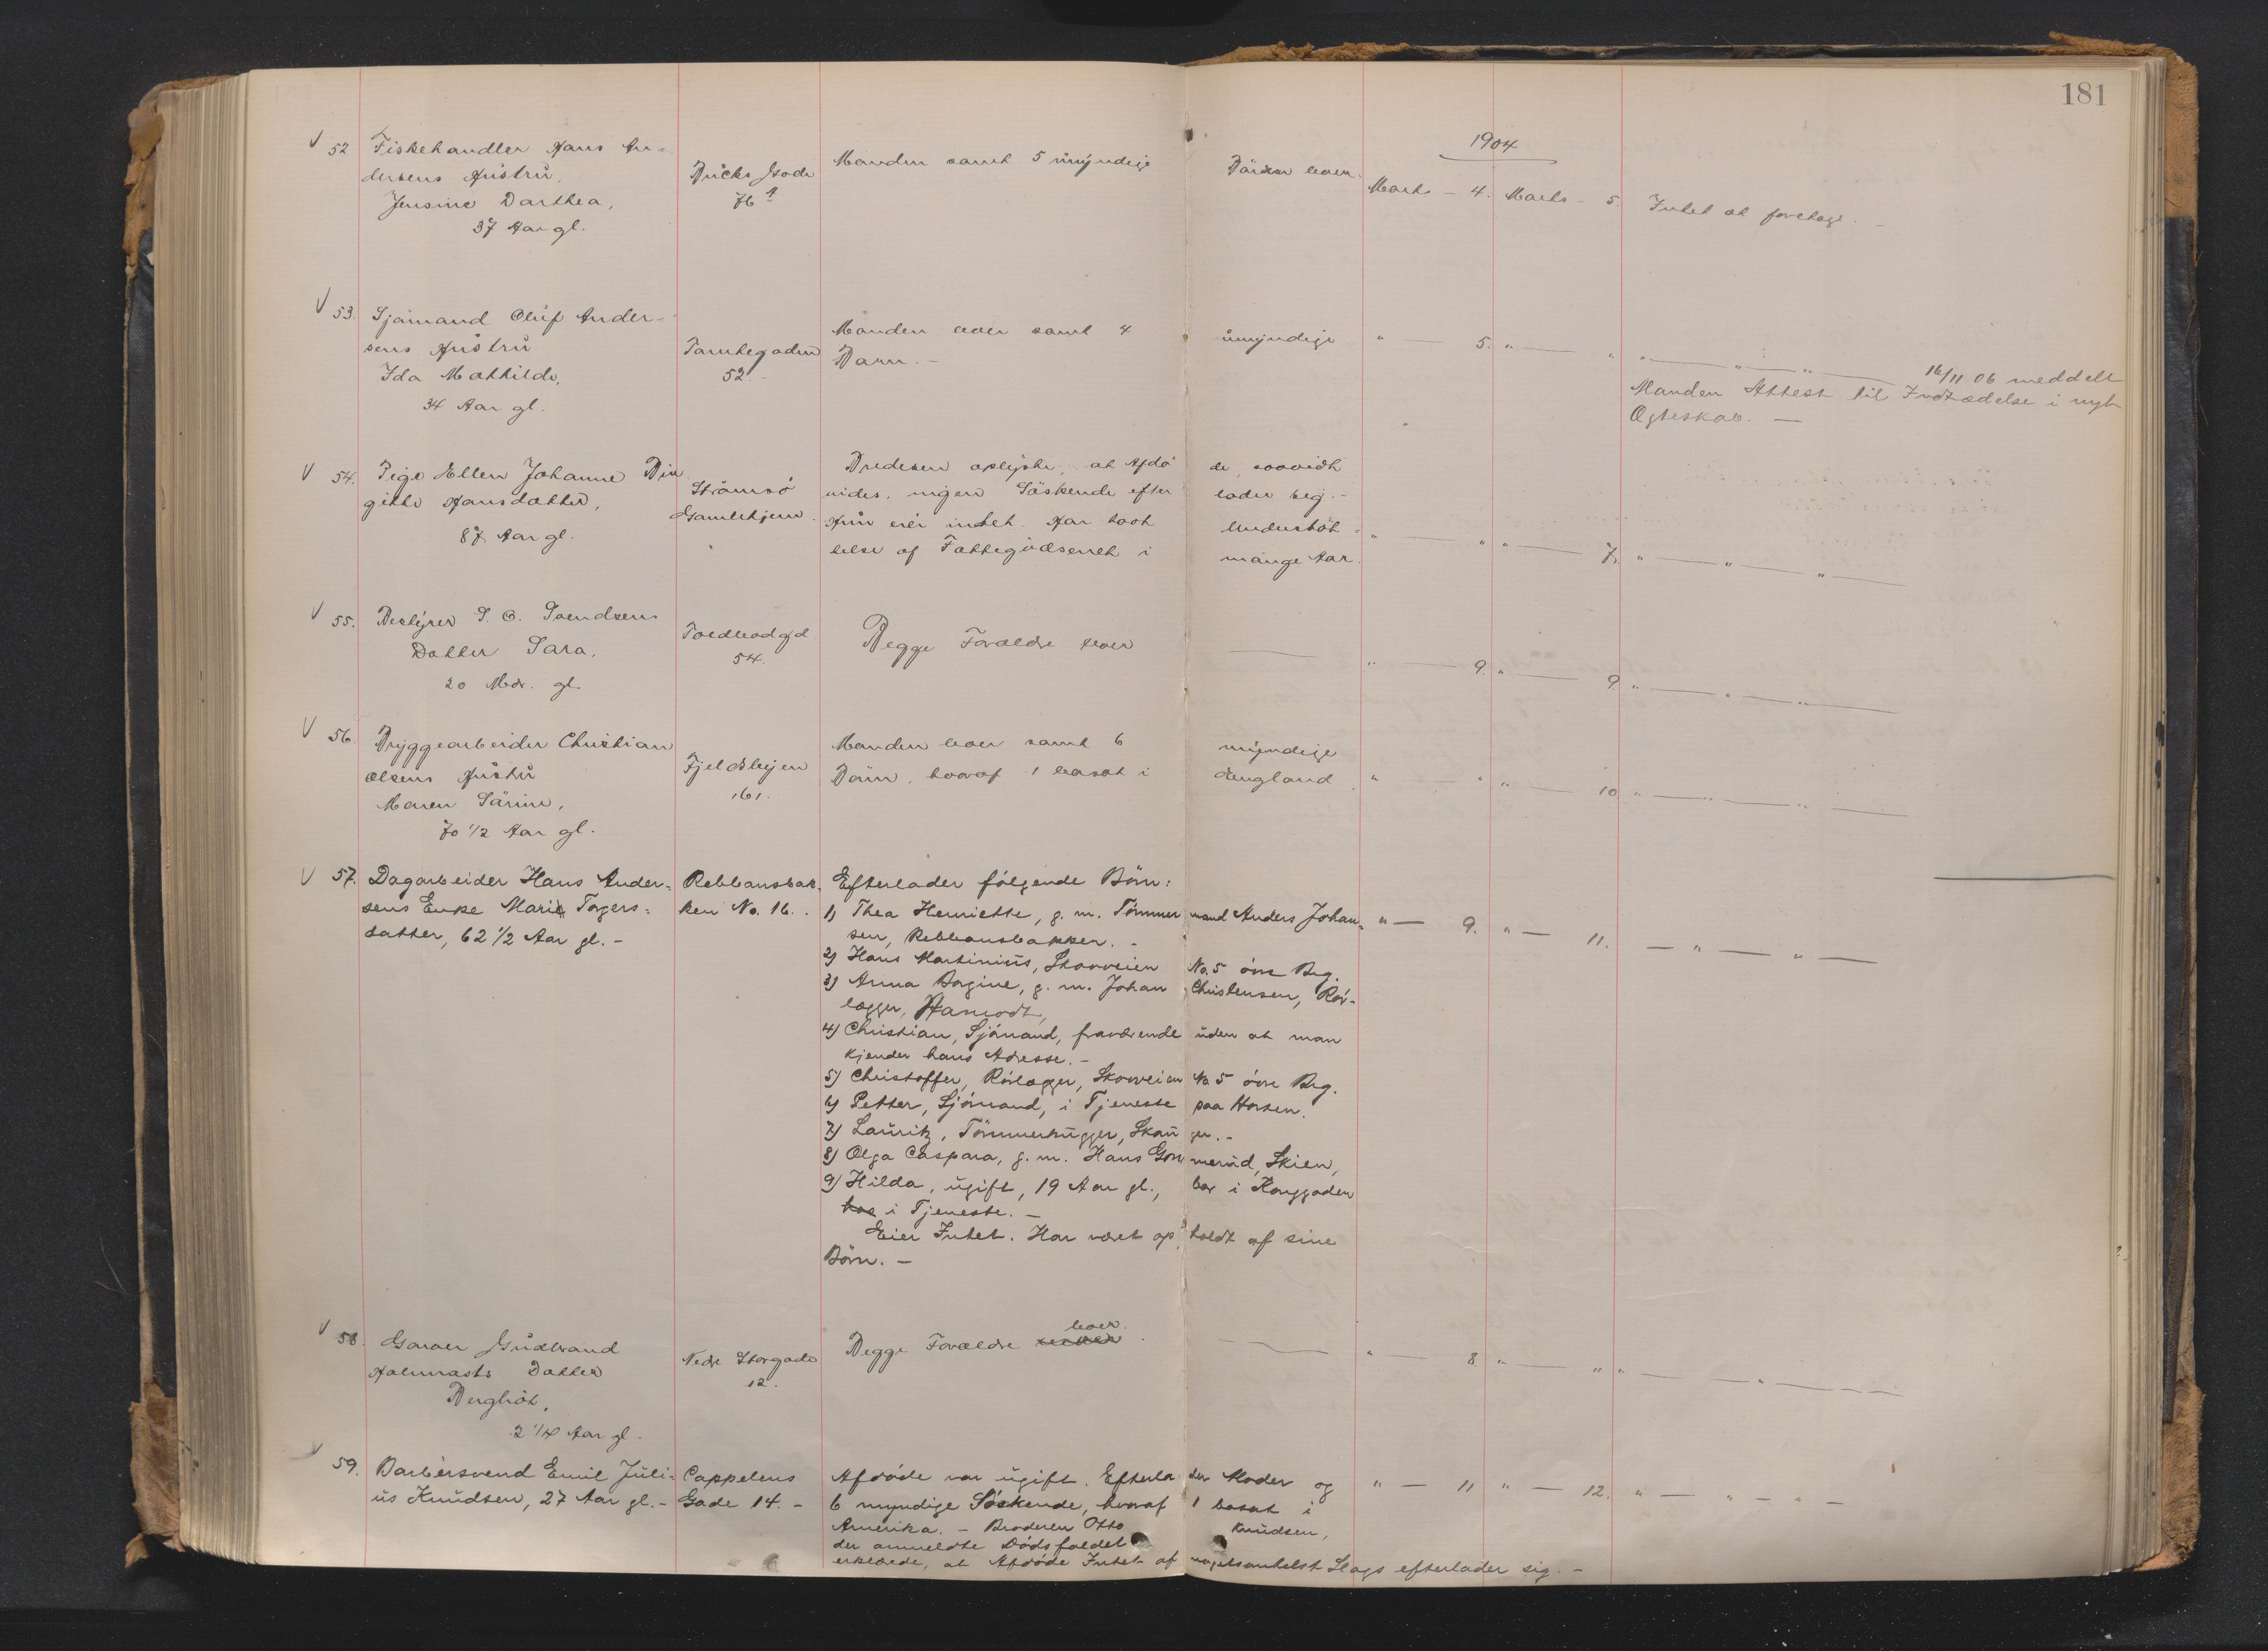 181
1904
V 52 Fiskehandler Hans An-
dersens Hustru,
Jensine Dorthea,
37 Aar gl.
Bücks Gade
76 A
Manden samt 5 umyndige Börn lever.
Marts - 4. Marts - 5. Intet at foretage. -
V 53. Sjömand Oluf Ander-
sens Hustru
Ida Mathilde,
34 Aar gl.
Tomtegaden
52. -
Manden lever samt 4 umyndige
Barn. -
" — 5. " — " " — " — " — 16/11 06 meddelt
Manden Attest til Indtrædelse i nyt
Ægteskab. —
V 54. Pige Ellen Johanne Bir
gitte Hansdatter,
87 Aar gl.
Strömsö
Gamlehjem.
Bredesen oplyste, at Afdö de, saavidt
vides, ingen Söskende efter lader sig. -
Hun eier intet. Har havt Understöt-
telse af Fattigvæsenet i mange Aar.
" — " " — 7. " — " — " —
V 55. Bestyrer S. O. Svendsens
Datter Sara,
20 Mdr. gl.
Toldbodgd.
54.
Begge Forældre lever —
" — 9. " — 9 " — " — " —
V 56. Bryggearbeider Christian
Olsens Hustru
Maren Sörine,
70 1/2 Aar gl.
Fjeldsbyen
161.
Manden lever samt 6 myndige
Börn, hvoraf 1 bosat i England.
" — " " — 10 " — " — " —
V 57. Dagarbeider Hans Ander-
sens Enke Marie Torgers-
datter, 62 1/2 Aar gl. -
Rebbansbak-
ken No. 16.
Efterlader fölgende Börn:
1) Thea Henriette, g. m. Tömmer mand Anders Johan-
sen, Rebbansbakken. -
" — 9. " — 11. — " — " —
2) Hans Martinius, Skovveien No. 5 övre Brg.
3) Anna Bogine, g. m. Johan Christensen, Rör-
lægger,
4) Christian, Sjömand, fraværende uden at man
kjender hans Adresse. -
5) Christoffer, Rörlægger, Skovveien No 5 övre Brg.
6) Petter, Sjömand, i Tjeneste paa Horten.
7) Lauritz, Tömmerhugger, Skau ger. -
8) Olga Caspara, g. m. Hans Gom merud, Skien,
9) Hilda, ugift, 19 Aar gl., bor i Konggaden
hos i Tjeneste. -
Eier Intet. Har været op holdt af sine
Börn. -
V 58. Garver Gudbrand
Holmrasts Datter
Bergliot,
2 1/4 Aar gl.
Nedre Storgade
12.
lever.
Begge Forældre
— " — 8 " — " " — " —
V 59. Barbersvend Emil Juli-
us Knudsen, 27 Aar gl. -
Cappelens
Gade 14. -
Afdöde var ugift. Efterla der Moder og
6 myndige Söskende, hvoraf 1 bosat i
Amerika. - Broderen Otto Knudsen,
der anmeldte Dödsfaldet
erklærede, at Afdöde Intet af nogetsomhelst Slags efterlader sig. -
" — 11 " — 12. " — " — " —